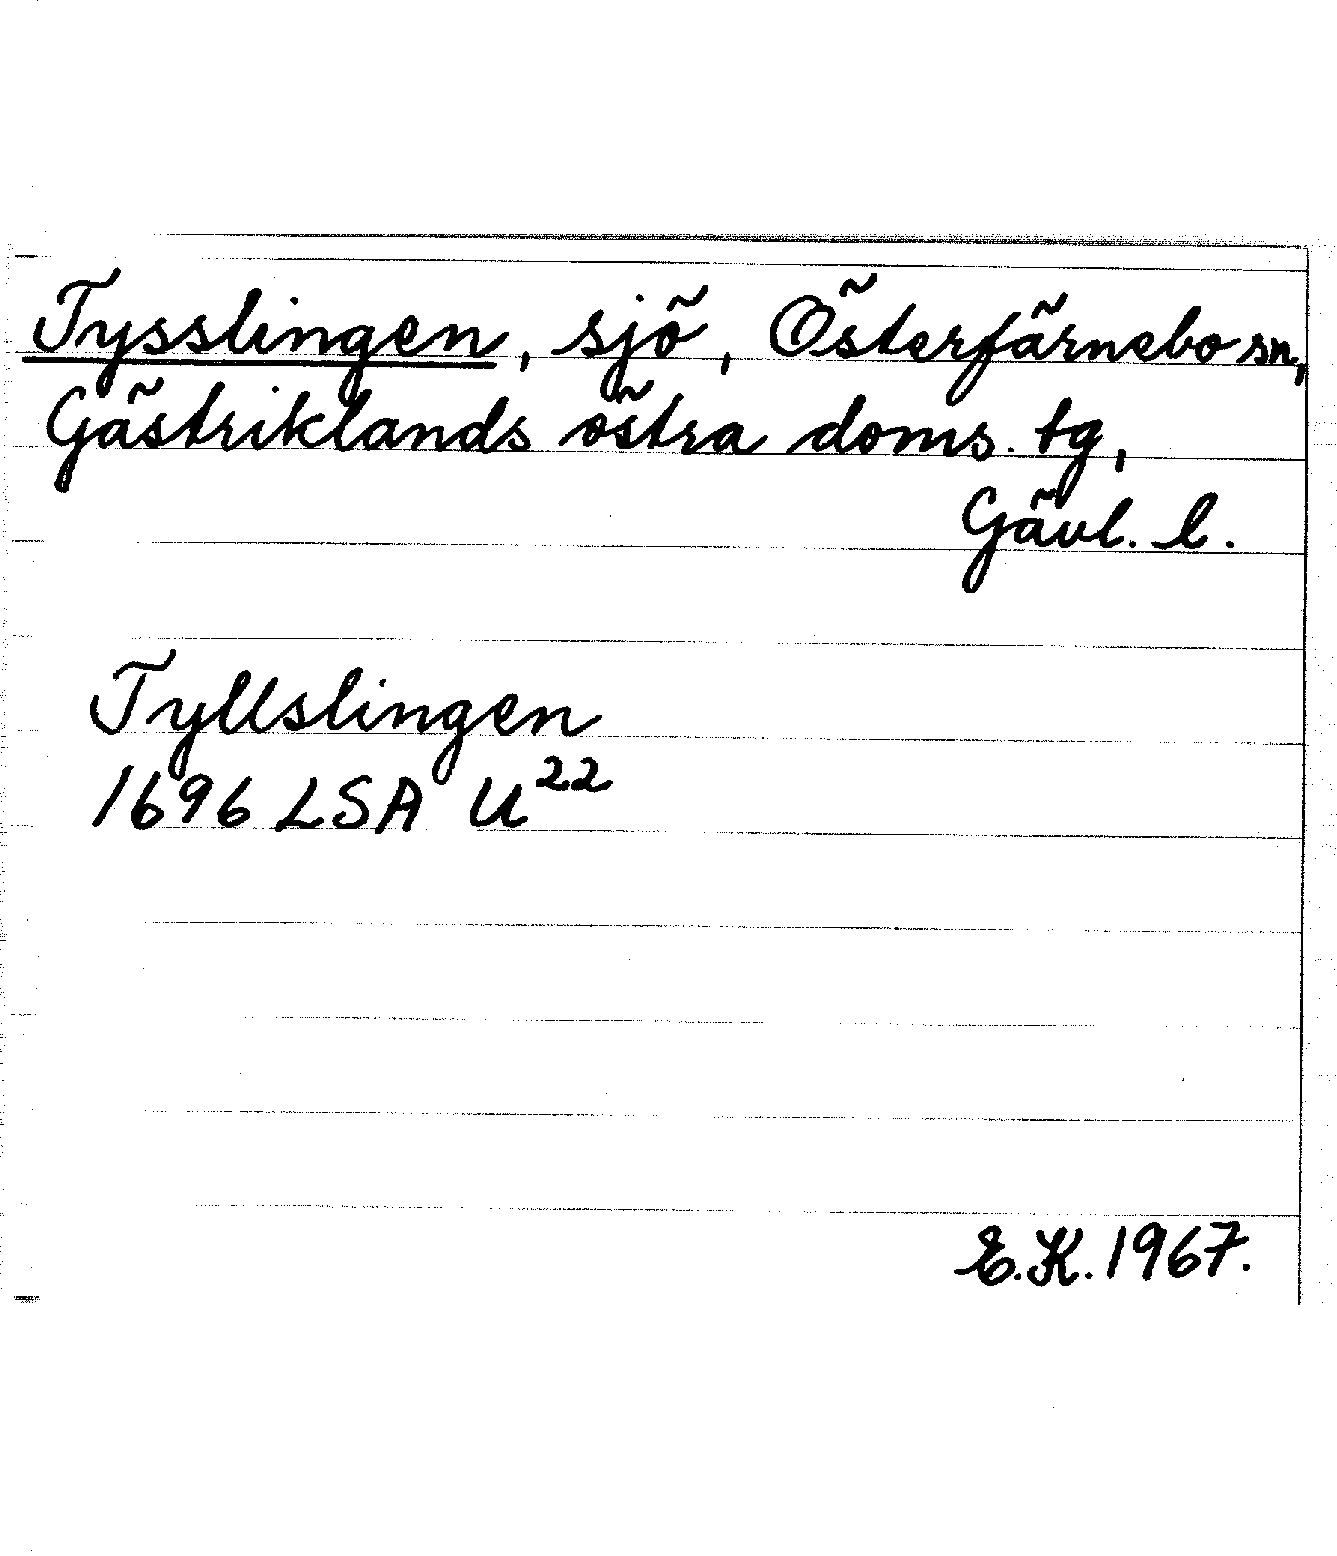 Tysslingen, sjö, Österfärnebo sn,
Gästriklands östra doms. tg,
Gävl. l.
Tyllslingen
1696 LSA U²²
E.K. 1967.